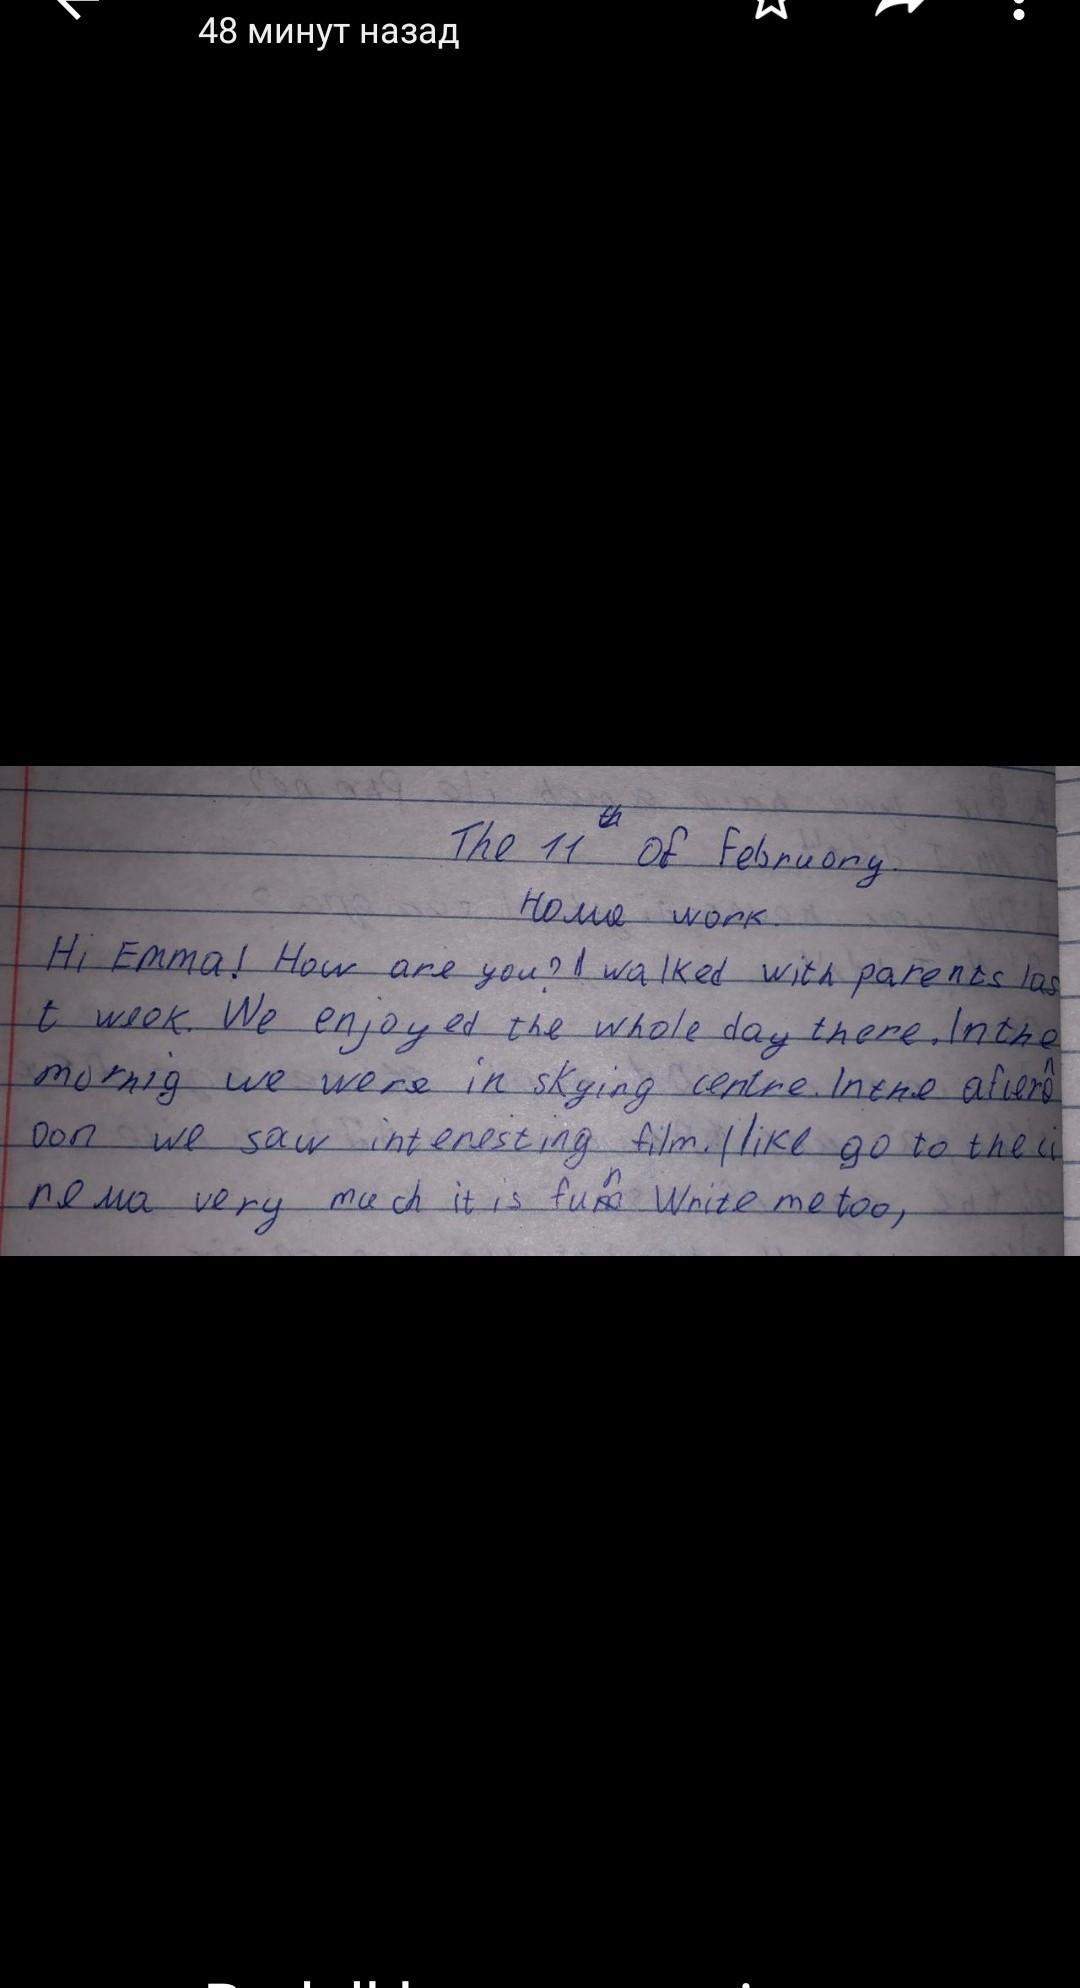 48 минут назад
The 11th of February.
Home work.
Hi Emma! How are you? I walked with parents las
t week. We enjoyed the whole day there. In the
mornig we were in skying centre. In the aftern
oon we saw interesting film. I like go to the ci
nema very much it is fun Write me too,